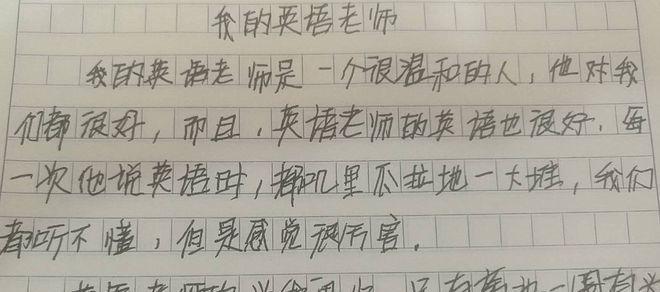 我的英语老师
我的英语老师是一个很温和的人，他对我
们都很好，而且，英语老师的英语也很好．每
一次他说英语时，都叽里瓜拉地一大堆，我们
都听不懂，但是感觉很厉害．